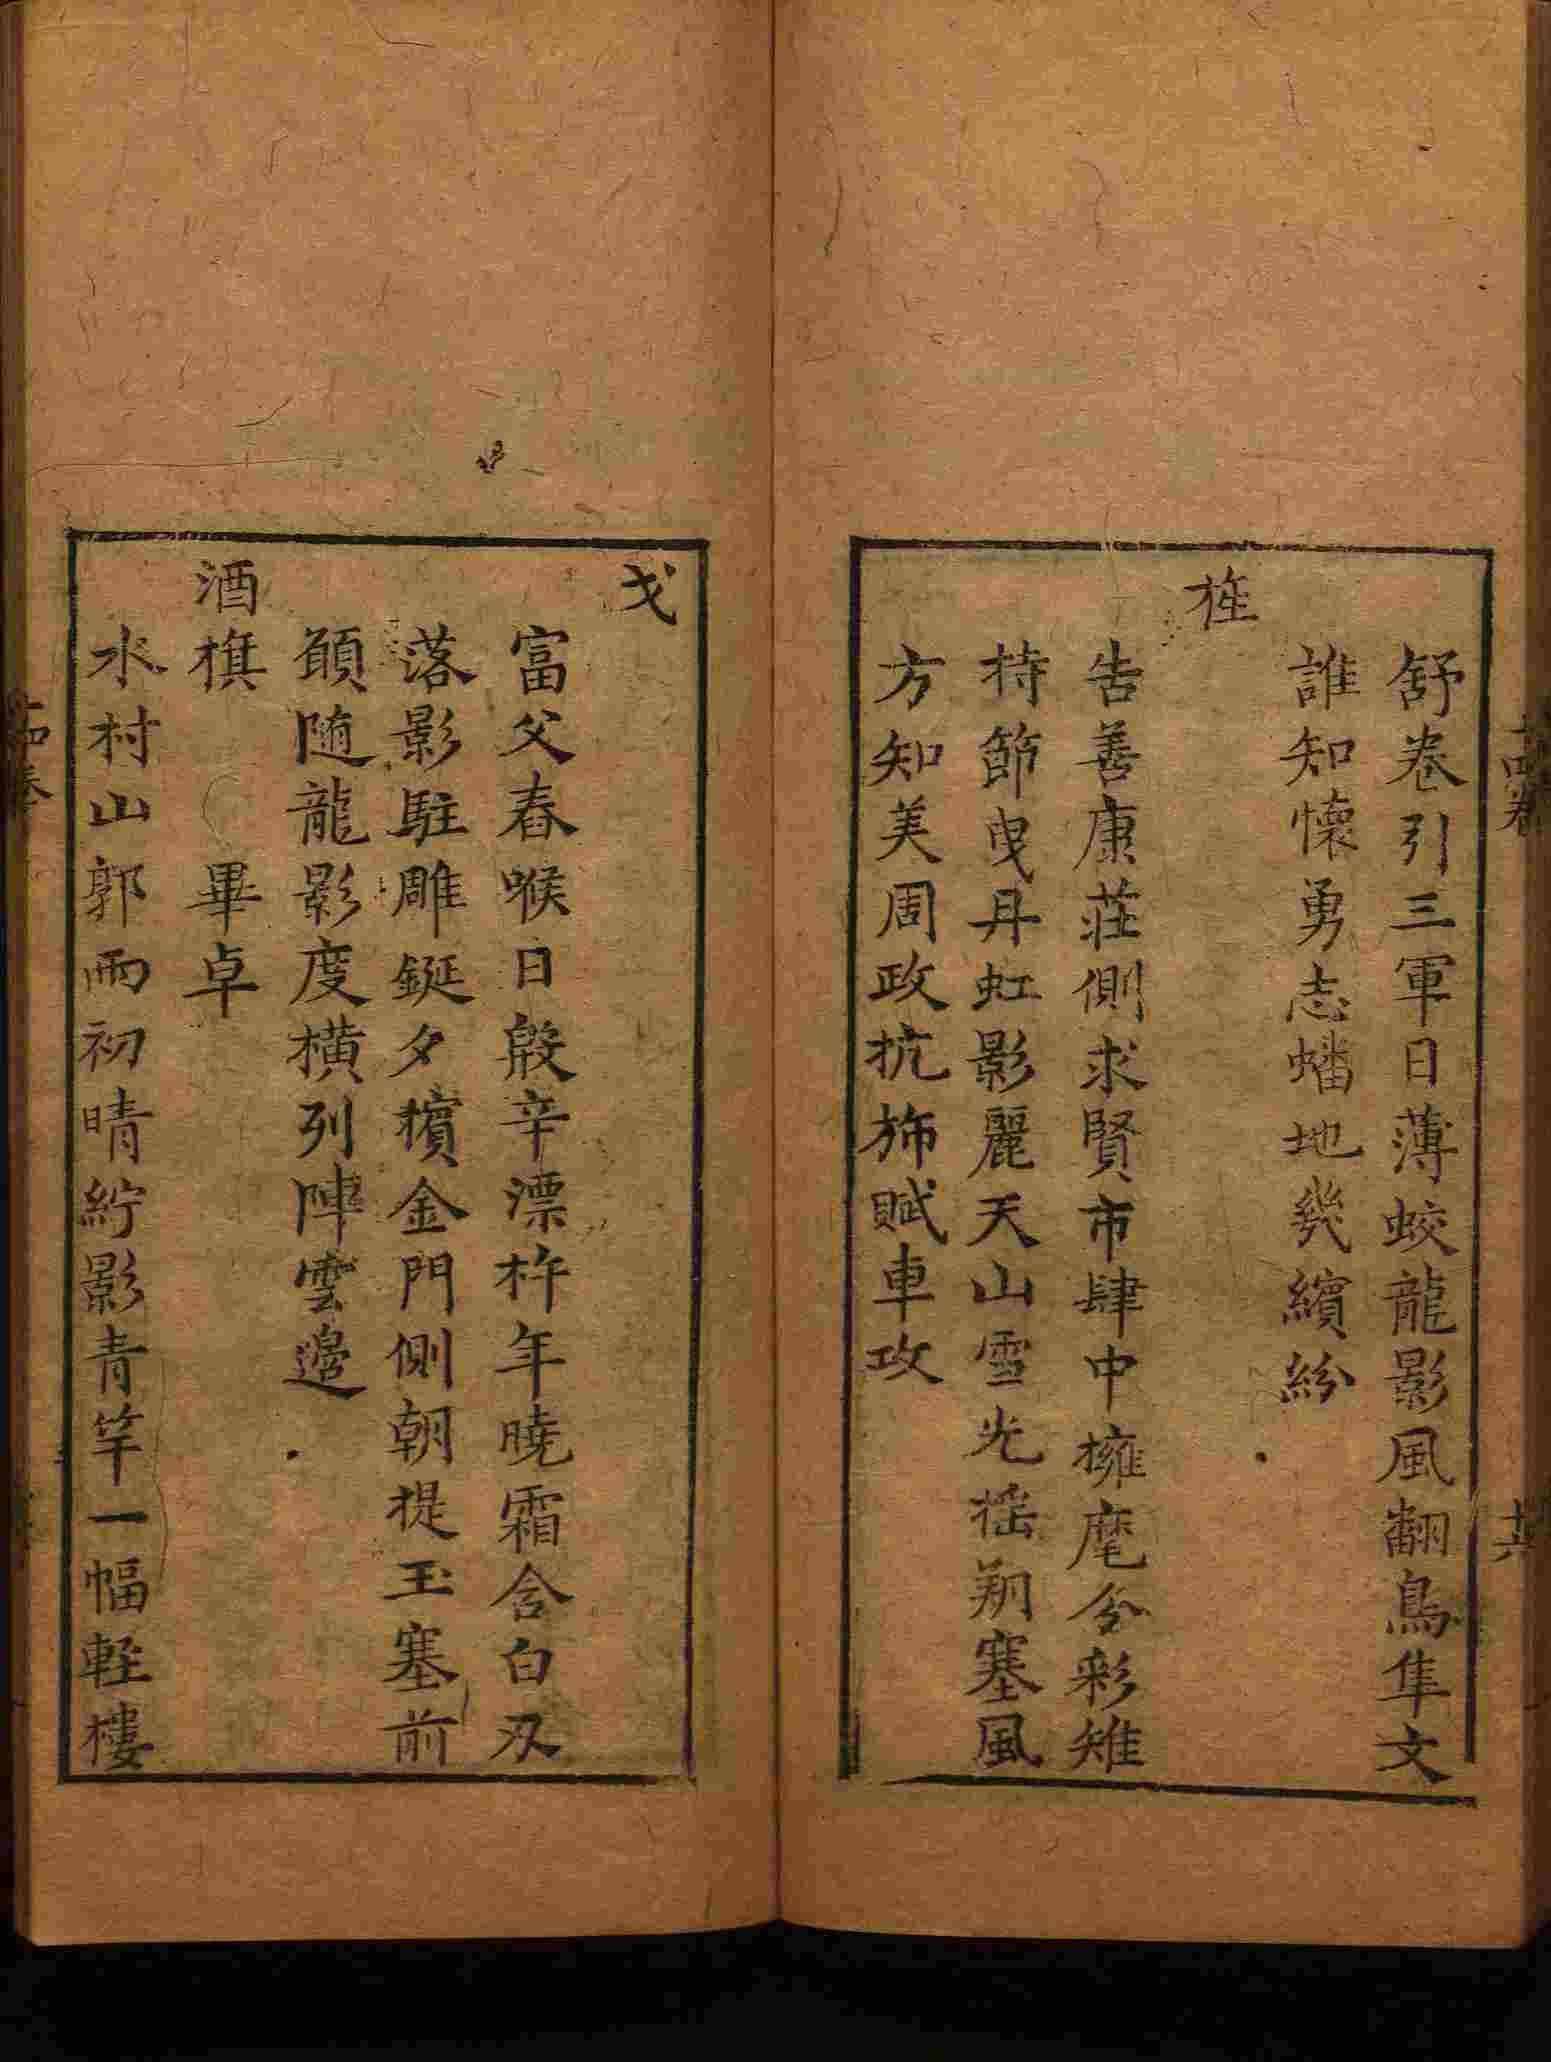 舒卷引三軍日薄蛟龍影風翻鳥隼文
誰知懷勇志蟠地幾繽紛
旌
告善康莊側求賢市肆中擁麾分彩雉
持節曳丹虹影麗天山雪光搖朔塞風
方知美周政抗斾賦車攻
戈
富父舂喉日殷辛漂杵年曉霜含白刃
落影駐雕鋋夕擯金門側朝提玉塞前
願随龍影度橫列陣雲邊
酒旗 畢卓
水村山郭雨初晴紵影青竿一幅輕樓